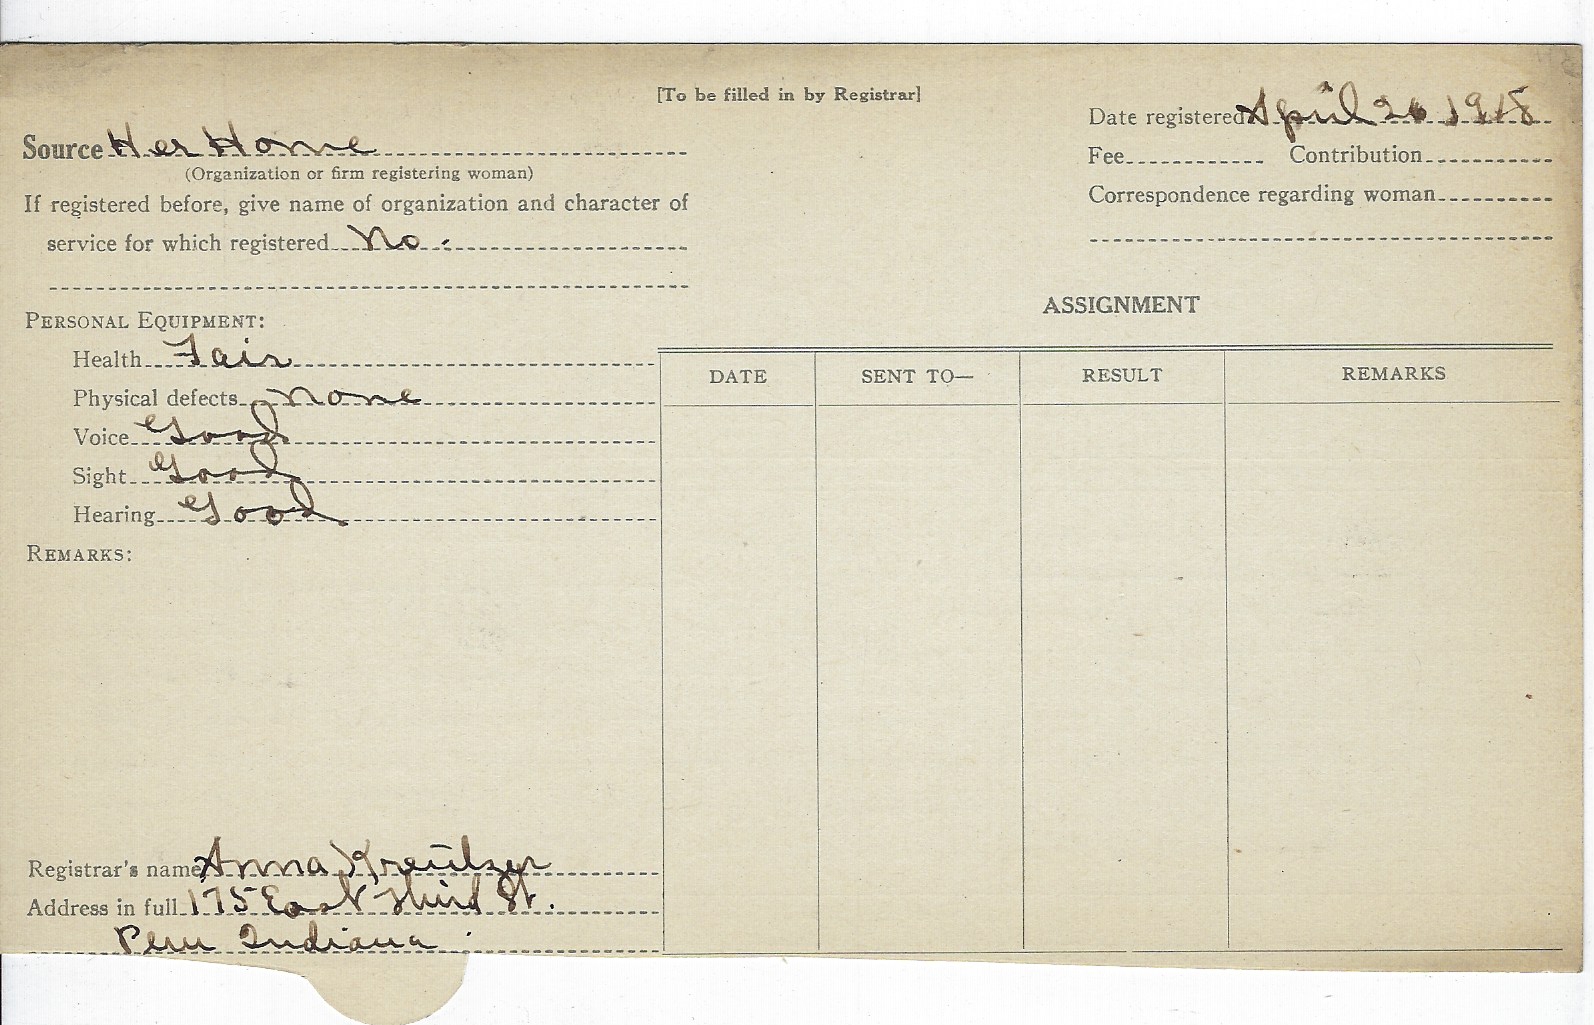 [To be filled in by Registrar]
Date registered April 26 1918
Source Her Home
(Organization or firm registering woman)
Fee Contribution
If registered before, give name of organization and character of
service for which registered No.
Correspondence regarding woman
PERSONAL EQUIPMENT:
Health Fair
Physical defects None
Voice Good
Sight Good
Hearing Good
REMARKS:
ASSIGNMENT
DATE SENT TO— RESULT REMARKS
Registrar's name Anna Kreutzer
Address in full 175 East Third St.
Peru Indiana